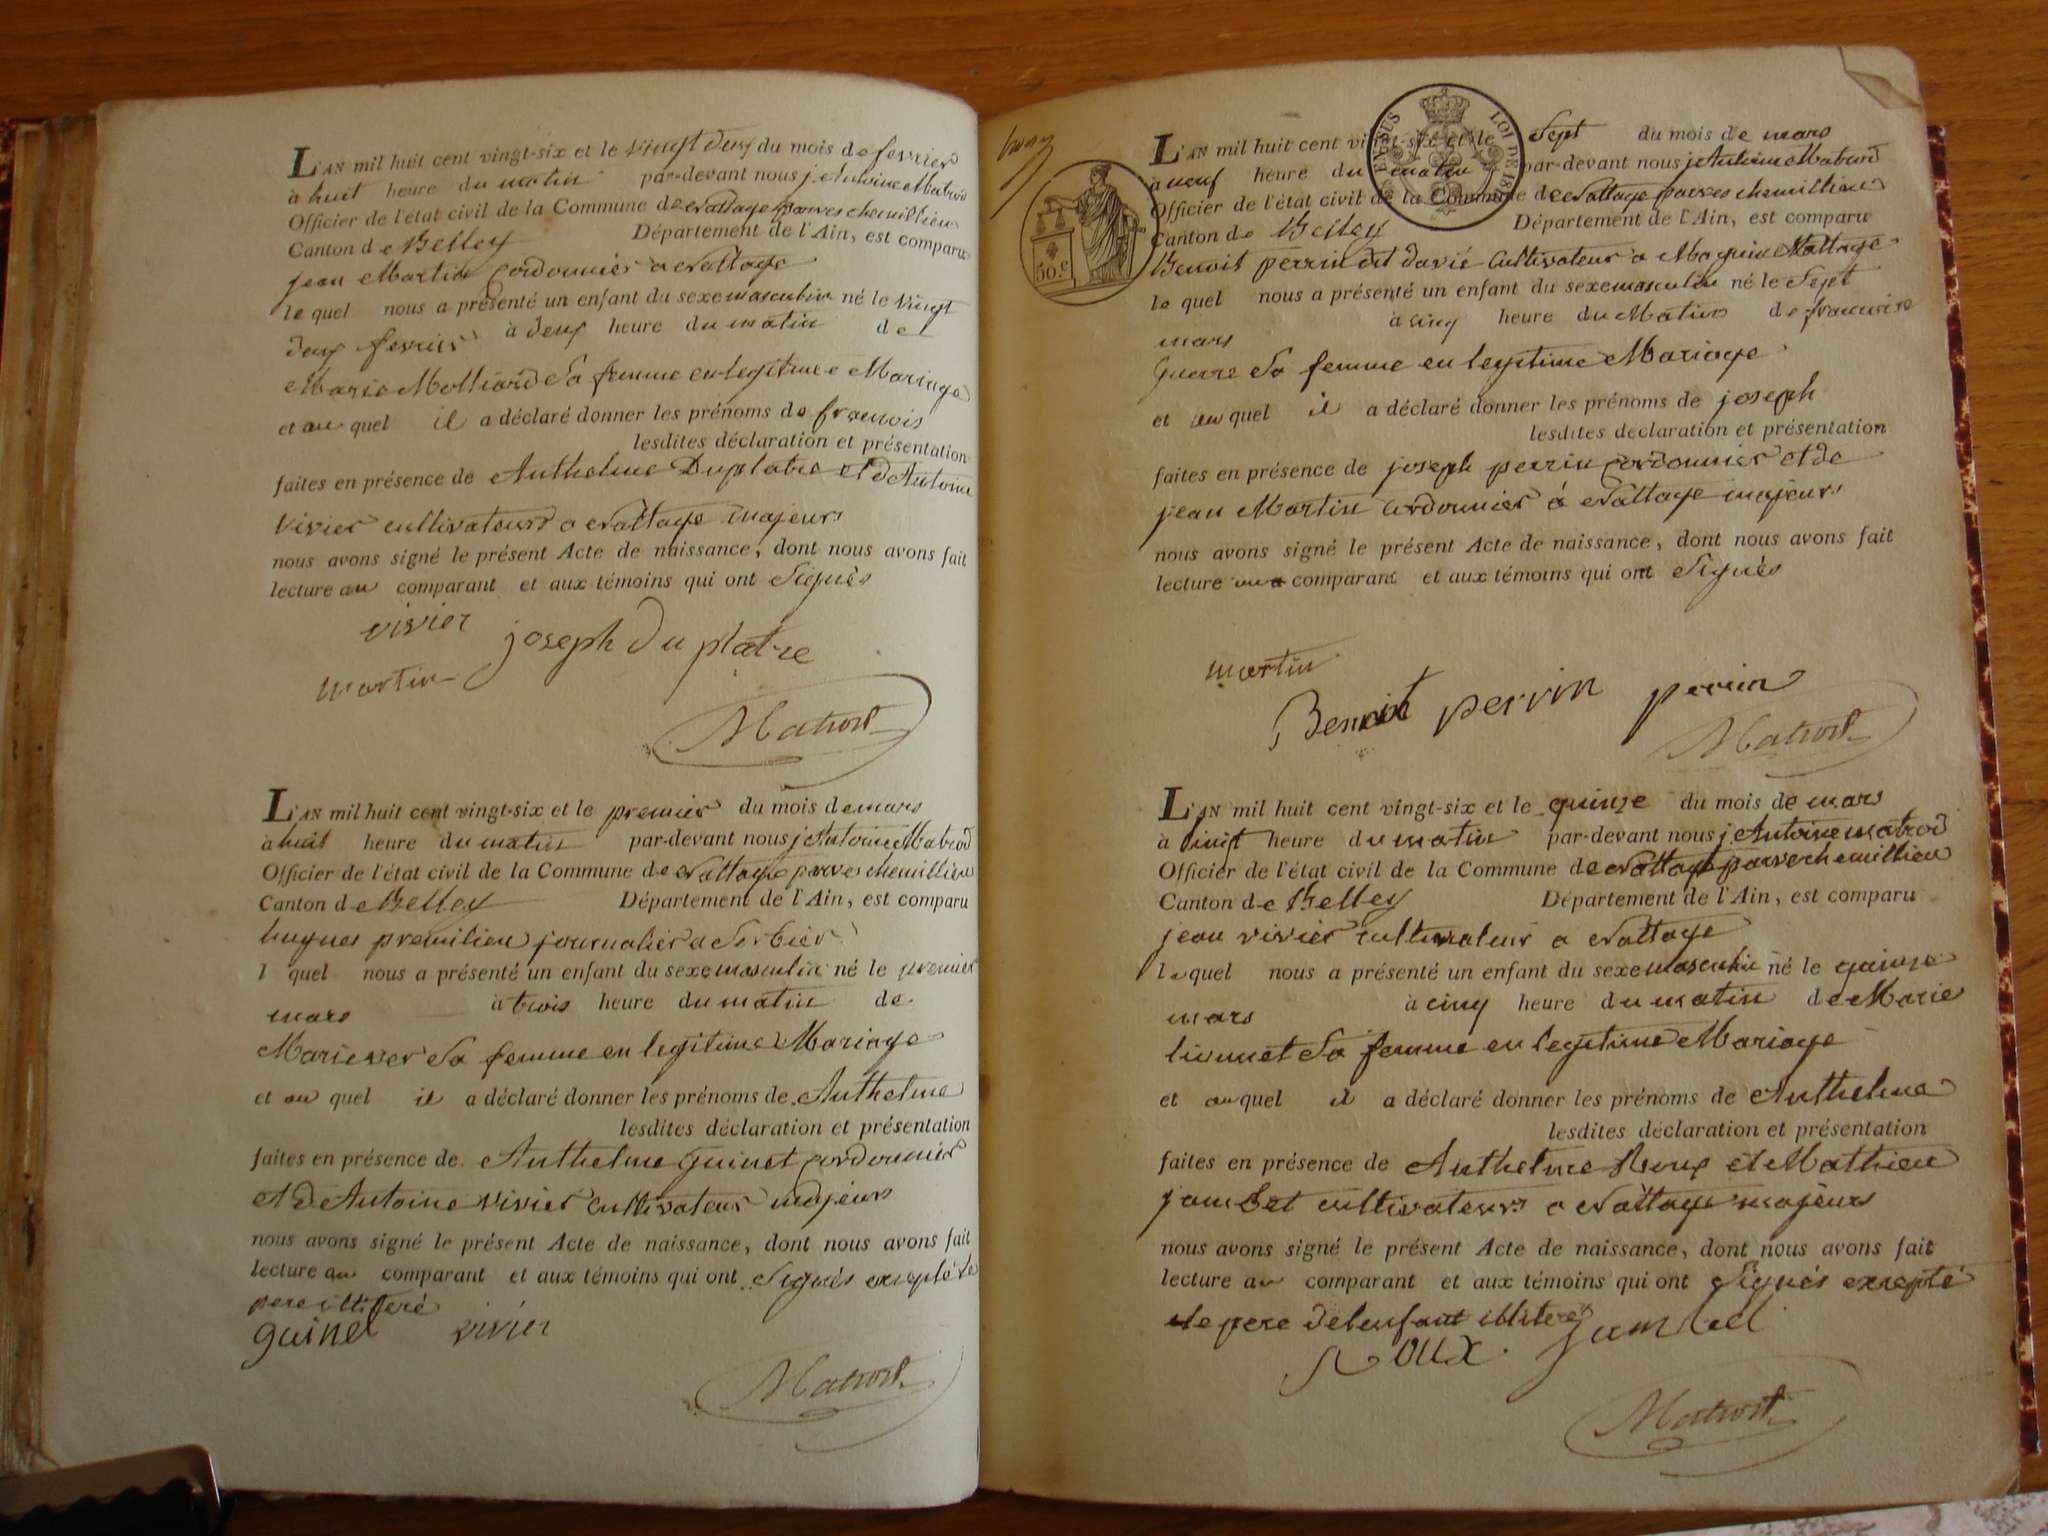 L'AN mil huit cent vingt-six et le vingt deux du mois de fevrier
à huit heure du matin par-devant nous j Antoine Matrod
Officier de l'état civil de la Commune de Nattage parves chemillieu
Canton de Belley Département de l'Ain, est comparu
jean Martin Cordonnier a Nattage
le quel nous a présenté un enfant du sexe masculin né le vingt
deux fevrier à deux heure du matin de
Marie Molliard Sa femme en legitime Mariage
et au quel il a déclaré donner les prénoms de francois
lesdites déclaration et présentation
faites en présence de Anthelme Duplatre et d Antoine
Vivier cultivateurs a Nattage majeurs
nous avons signé le présent Acte de naissance, dont nous avons fait
lecture au comparant et aux témoins qui ont Signés
vivier joseph du platre
martin
Matrod
L'AN mil huit cent vingt-six et le premier du mois de mars
à huit heure du matin par-devant nous j Antoine Matrod
Officier de l'état civil de la Commune de Nattage parves chemillieu
Canton de Belley Département de l'Ain, est comparu
hugues premilieu journalier a Sorbier
l quel nous a présenté un enfant du sexe masculin né le premier
mars à trois heure du matin de
Marie Sa femme en legitime Mariage
et au quel il a déclaré donner les prénoms de Anthelme
lesdites déclaration et présentation
faites en présence de Anthelme Guinet cordonnier
et d Antoine Vivier Cultivateur majeurs
nous avons signé le présent Acte de naissance, dont nous avons fait
lecture au comparant et aux témoins qui ont Signés excepté le
pere illiteré
guinet vivier
Matrod
50 c
L'AN mil huit cent vingt-six et le Sept du mois de mars
à neuf heure du matin par-devant nous j Antoine Matrod
Officier de l'état civil de la Commune de Nattage parves chemillieu
Canton de Belley Département de l'Ain, est comparu
Benoit perrin dit davié Cultivateur a Nattage
le quel nous a présenté un enfant du sexe masculin né le Sept
mars à cinq heure du Matin de francoise
Guerre Sa femme en legitime Mariage
et au quel il a déclaré donner les prénoms de joseph
lesdites déclaration et présentation
faites en présence de joseph perrin cordonnier et de
jean Martin cordonnier à Nattage majeurs
nous avons signé le présent Acte de naissance, dont nous avons fait
lecture au comparant et aux témoins qui ont Signés
martin
Benoit perrin perrin
Matrod
L'AN mil huit cent vingt-six et le quinze du mois de mars
à heure du matin par-devant nous j. Antoine Matrod
Officier de l'état civil de la Commune de Nattage parves chemillieu
Canton de Belley Département de l'Ain, est comparu
jean vivier cultivateur a Nattage
le quel nous a présenté un enfant du sexe masculin né le quinze
mars à cinq heure du matin de Marie
lionnet Sa femme en legitime Mariage
et au quel il a déclaré donner les prénoms de Anthelme
lesdites déclaration et présentation
faites en présence de Anthelme Roux et Mathieu
jambet cultivateurs a Nattage majeurs
nous avons signé le présent Acte de naissance, dont nous avons fait
lecture au comparant et aux témoins qui ont Signés excepté
le pere de lenfant illiteré
Roux jambet
Matrod